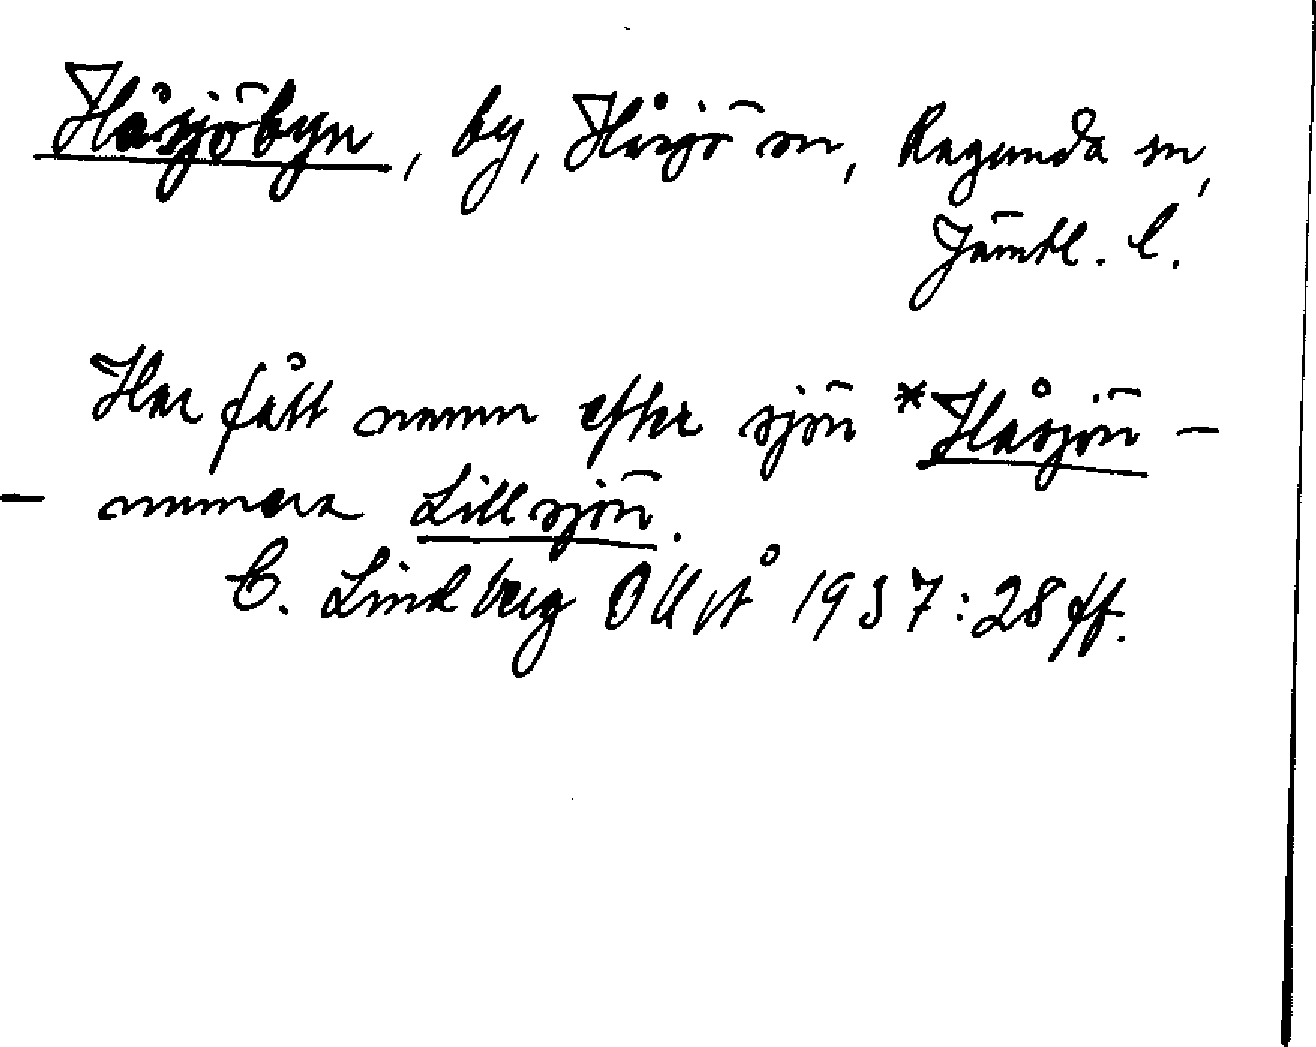 Håsjöbyn, by, Håsjö sn, Ragunda sn,
Jämtl. l.
Har fått namn efter sjön *Håsjön –
– numera Lillsjön.
C. Lindberg 1937:28 ff.